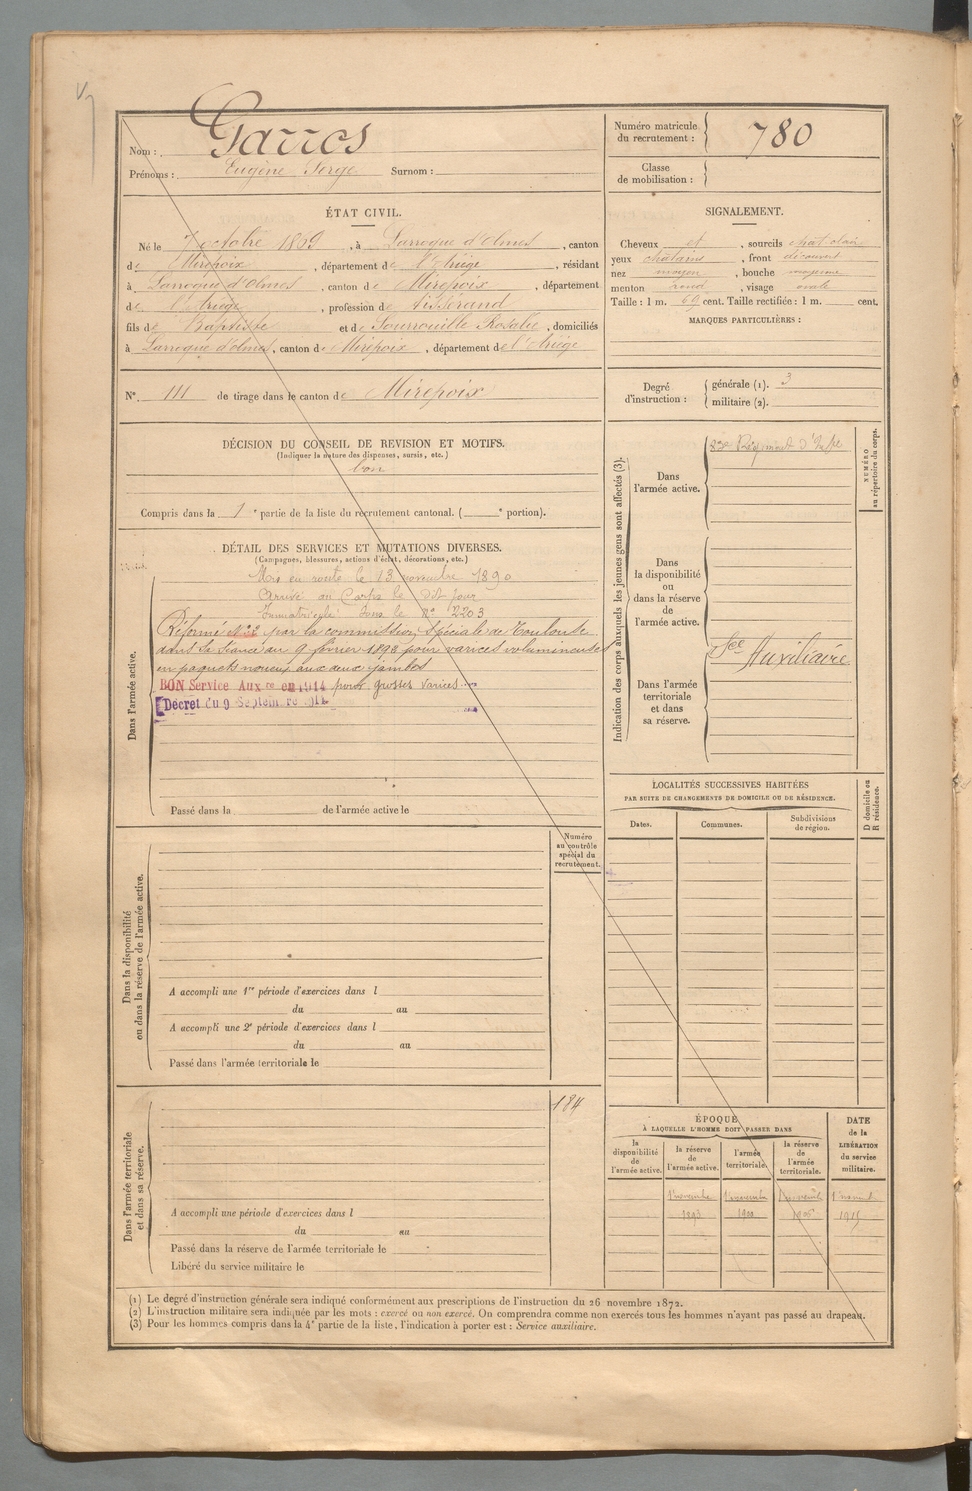 Nom : Garros
Prénoms : Eugène Serge Surnom :
Numéro matricule du recrutement : 780
Classe de mobilisation :
ÉTAT CIVIL.
Né le 7 octobre 1869, à Larroque d'Olmes, canton
de Mirepoix, département de l'Ariège, résidant
à Larroque d'olmes, canton de Mirepoix, département
de l'Ariège, profession de tisserand
fils de Baptiste et de Sourrouille Rosalie, domiciliés
à Larroque d'olmes, canton de Mirepoix, département de l'Ariège
N° 111 de tirage dans le canton de Mirepoix
SIGNALEMENT.
Cheveux et, sourcils chat clair
yeux chatains, front découvert
nez moyen, bouche moyenne
menton rond, visage ovale
Taille : 1 m. 69 cent. Taille rectifiée : 1 m. cent.
MARQUES PARTICULIÈRES :
Degré d'instruction :
générale (1). 3
militaire (2).
DÉCISION DU CONSEIL DE REVISION ET MOTIFS.
(Indiquer la nature des dispenses, sursis, etc.)
bon
Compris dans la 1e partie de la liste du recrutement cantonal. ( e portion).
DÉTAIL DES SERVICES ET MUTATIONS DIVERSES.
(Campagnes, blessures, actions d'éclat, décorations, etc.)
Dans l'armée active.
Mis en route le 13 novembre 1890
Arrivé au Corps le dit jour
Immatriculé sous le n° 2203
Réformé N°2 par la commission spéciale de Toulouse
dans sa séance du 9 février 1892 pour varices volumineuses
en paquets noueux aux deux jambes
BON Service Aux re en 1914 pour grosses varices
Décret du 9 Septembre 1914
Passé dans la de l'armée active le
Indication des corps auxquels les jeunes gens sont affectés (3).
NUMÉRO au répertoire du corps.
Dans l'armée active.
Régiment d'Infie
Dans la disponibilité ou dans la réserve de l'armée active.
Dans l'armée territoriale et dans sa réserve.
Sce Auxiliaire
LOCALITÉS SUCCESSIVES HABITÉES
PAR SUITE DE CHANGEMENTS DE DOMICILE OU DE RÉSIDENCE.
Dates. Communes. Subdivisions de région.
D domicile ou R résidence.
Dans la disponibilité ou dans la réserve de l'armée active.
Numéro au contrôle spécial du recrutement.
A accompli une 1re période d'exercices dans l
du au
A accompli une 2e période d'exercices dans l
du au
Passé dans l'armée territoriale le
Dans l'armée territoriale et dans sa réserve.
184
A accompli une période d'exercices dans l
du au
Passé dans la réserve de l'armée territoriale le
Libéré du service militaire le
ÉPOQUE
À LAQUELLE L'HOMME DOIT PASSER DANS
la disponibilité de l'armée active.
la réserve de l'armée active.
l'armée territoriale.
la réserve de l'armée territoriale.
DATE de la LIBÉRATION du service militaire.
1 novembre 1 novembre 1 novembre 1 novemb
1893 1900 1906 1915
(1) Le degré d'instruction générale sera indiqué conformément aux prescriptions de l'instruction du 26 novembre 1872.
(2) L'instruction militaire sera indiquée par les mots : exercé ou non exercé. On comprendra comme non exercés tous les hommes n'ayant pas passé au drapeau.
(3) Pour les hommes compris dans la 4e partie de la liste, l'indication à porter est : Service auxiliaire.